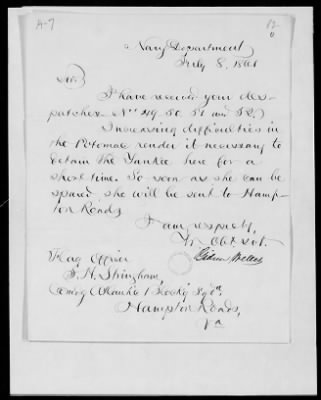 A-7
Navy Department
July 8, 1861
Sir,
I have received your des-
patches Nos 49, 50, 51 and 52.
Increasing difficulties in
the Potomac render it necessary to
detain the Yankee here for a
short time. So soon as she can be
spared she will be sent to Hamp-
ton Roads
I am, respecty,
Yr Obt Svt.
Gideon Welles
Flag Officer
S. H. Stringham,
Comdg Atlantic Blockg Sqdn,
Hampton Roads,
Va